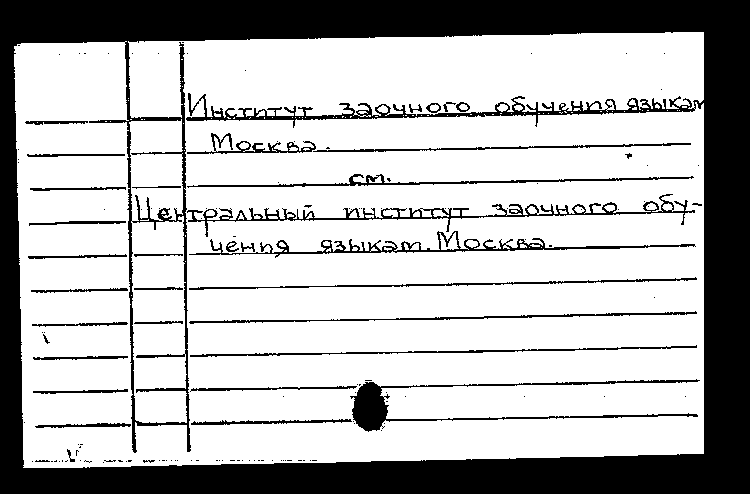 Институт заочного обучения языкам
Москва.
см.
Центральный институт заочного обу-
чения языкам. Москва.